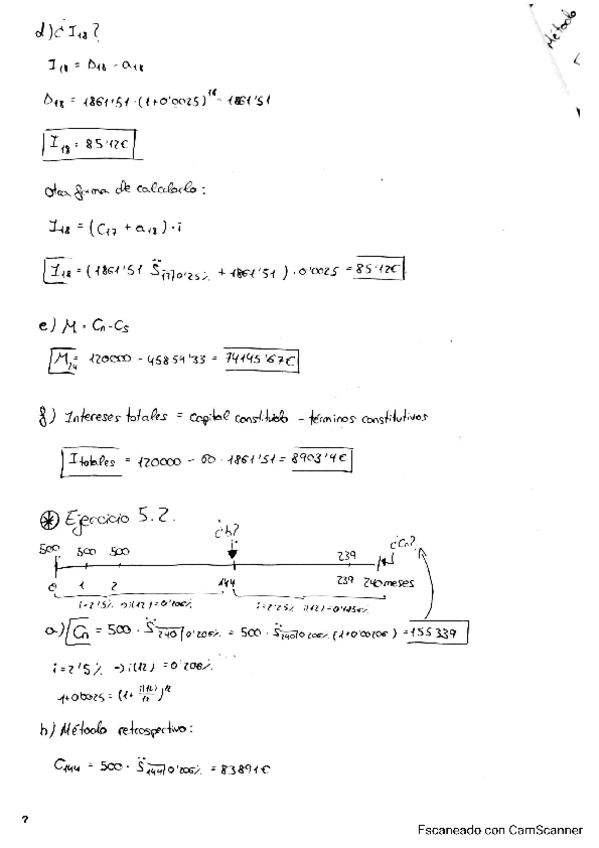 Método
d) ¿I₁₈?
I₁₈ = D₁₈ - a₁₈
D₁₈ = 1861'51 · (1+0'0025)¹⁸ - 1861'51
I₁₈ = 85'12€
otra forma de calcularlo:
I₁₈ = (C₁₇ + a₁₈) · i
I₁₈ = (1861'51 S̈₁₇⌉0'25% + 1861'51) · 0'0025 = 85'12€
e) M = Cn - Cs
M₂₄ = 120000 - 45854'33 = 74145'67€
f) Intereses totales = capital constituido - términos constitutivos
I totales = 120000 - 60 · 1861'51 = 8903'4€
Ejercicio 5.2.
¿b? ¿Cn?
500 500 500 239
0 1 2 144 239 240 meses
i=2'5% → i(12)=0'206%
a) Cn = 500 · S̈₂₄₀⌉0'206% = 500 · S₂₄₀⌉0'206% (1+0'00206) = 155339
i=2'5% → i(12) = 0'206%
1+0'0025 = (1+ i(12)/12)¹²
b) Método retrospectivo:
C₁₄₄ = 500 · S̈₁₄₄⌉0'206% = 83891€
?
Escaneado con CamScanner